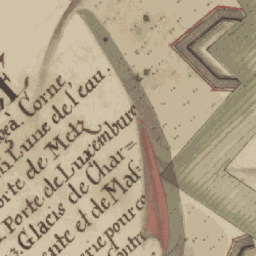 à Corne
Lune de l'eau.
orte de Metz
Porte de Luxembure
Glacis de Char=
ente et de Mal=
rie pour co
Contre